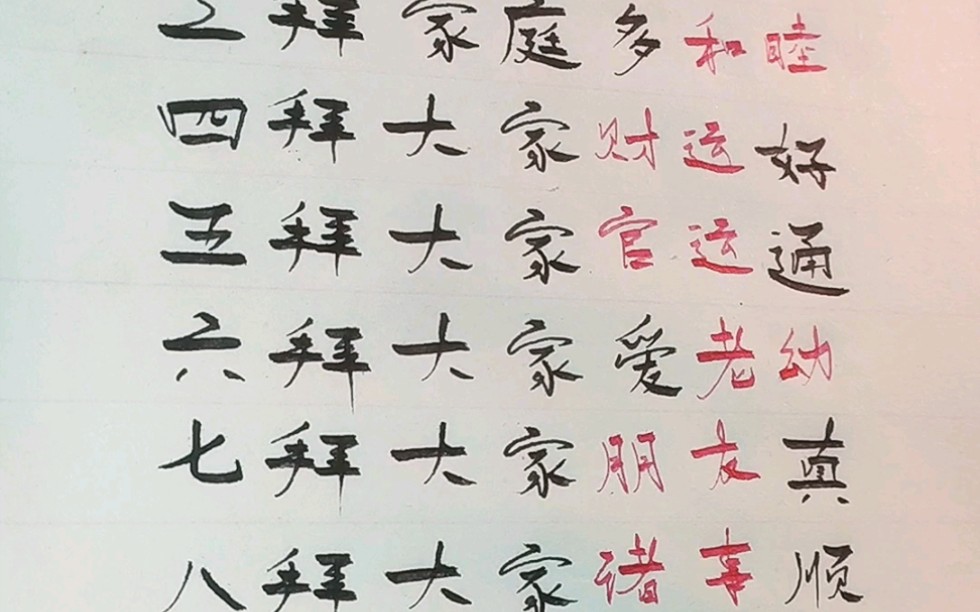 三拜家庭多和睦
四拜大家财运好
五拜大家官运通
六拜大家爱老幼
七拜大家朋友真
八拜大家诸事顺